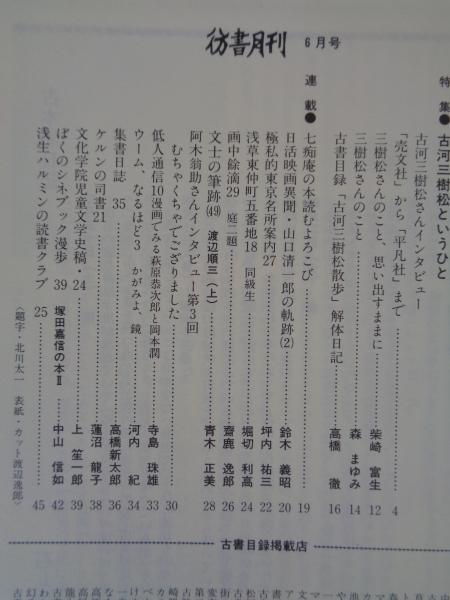 彷書月刊 6月号
特集●古河三樹松というひと
古河三樹松さんインタビュー
「売文社」から「平凡社」まで 4
三樹松さんのこと、思い出すままに 柴崎 富生 12
三樹松さんのこと 森 まゆみ 14
古書目録「古河三樹松散歩」解体日記 高橋 徹 16
連載●
七痴庵の本読むよろこび 19
日活映画異聞・山口清一郎の軌跡(2) 鈴木 義昭 20
極私的東京名所案内27 坪内 祐三 22
浅草東仲町五番地18 同級生 堀切 利高 24
画中餘滴29 庭二題 齋鹿 逸郎 26
文士の筆跡(49) 渡辺順三(上) 青木 正美 28
阿木翁助さんインタビュー第3回
むちゃくちゃでござりました 30
低人通信10漫画でみる萩原恭次郎と岡本潤 寺島 珠雄 33
ウーム、なるほど3 かがみよ、鏡 河内 紀 34
集書日誌 35 高橋新太郎 36
ケルンの司書21 蓮沼 龍子 38
文化学院児童文学史稿・24 上 笙一郎 39
ぼくのシネブック漫歩 39 塚田嘉信の本Ⅱ 中山 信如 42
浅生ハルミンの読書クラブ 25 45
〈題字・北川太一 表紙・カット渡辺逸郎〉
古書目録掲載店